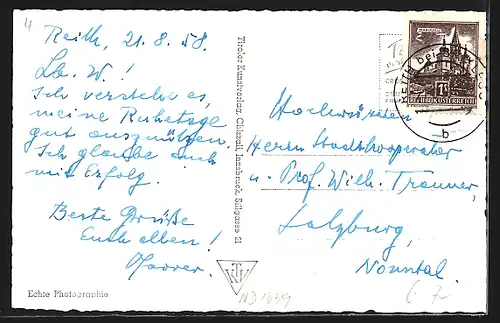 4
Reith, 21.8.58.
Lb. W.!
Ich verstehe es,
meine Ruhetage
gut auszunützen.
Ich glaube auch
mit Erfolg.
Beste Grüße
Euch allen!
Pfarrer.
Echte Photographie
Tiroler Kunstverlag Chizzali, Innsbruck, Sillgasse 21
ND 1639
REPUBLIK ÖSTERREICH
REITH BEI
b
Hochwürden
Herrn Stadtkooperator
u. Prof. Wilh. Trauner,
Salzburg,
Nonntal.